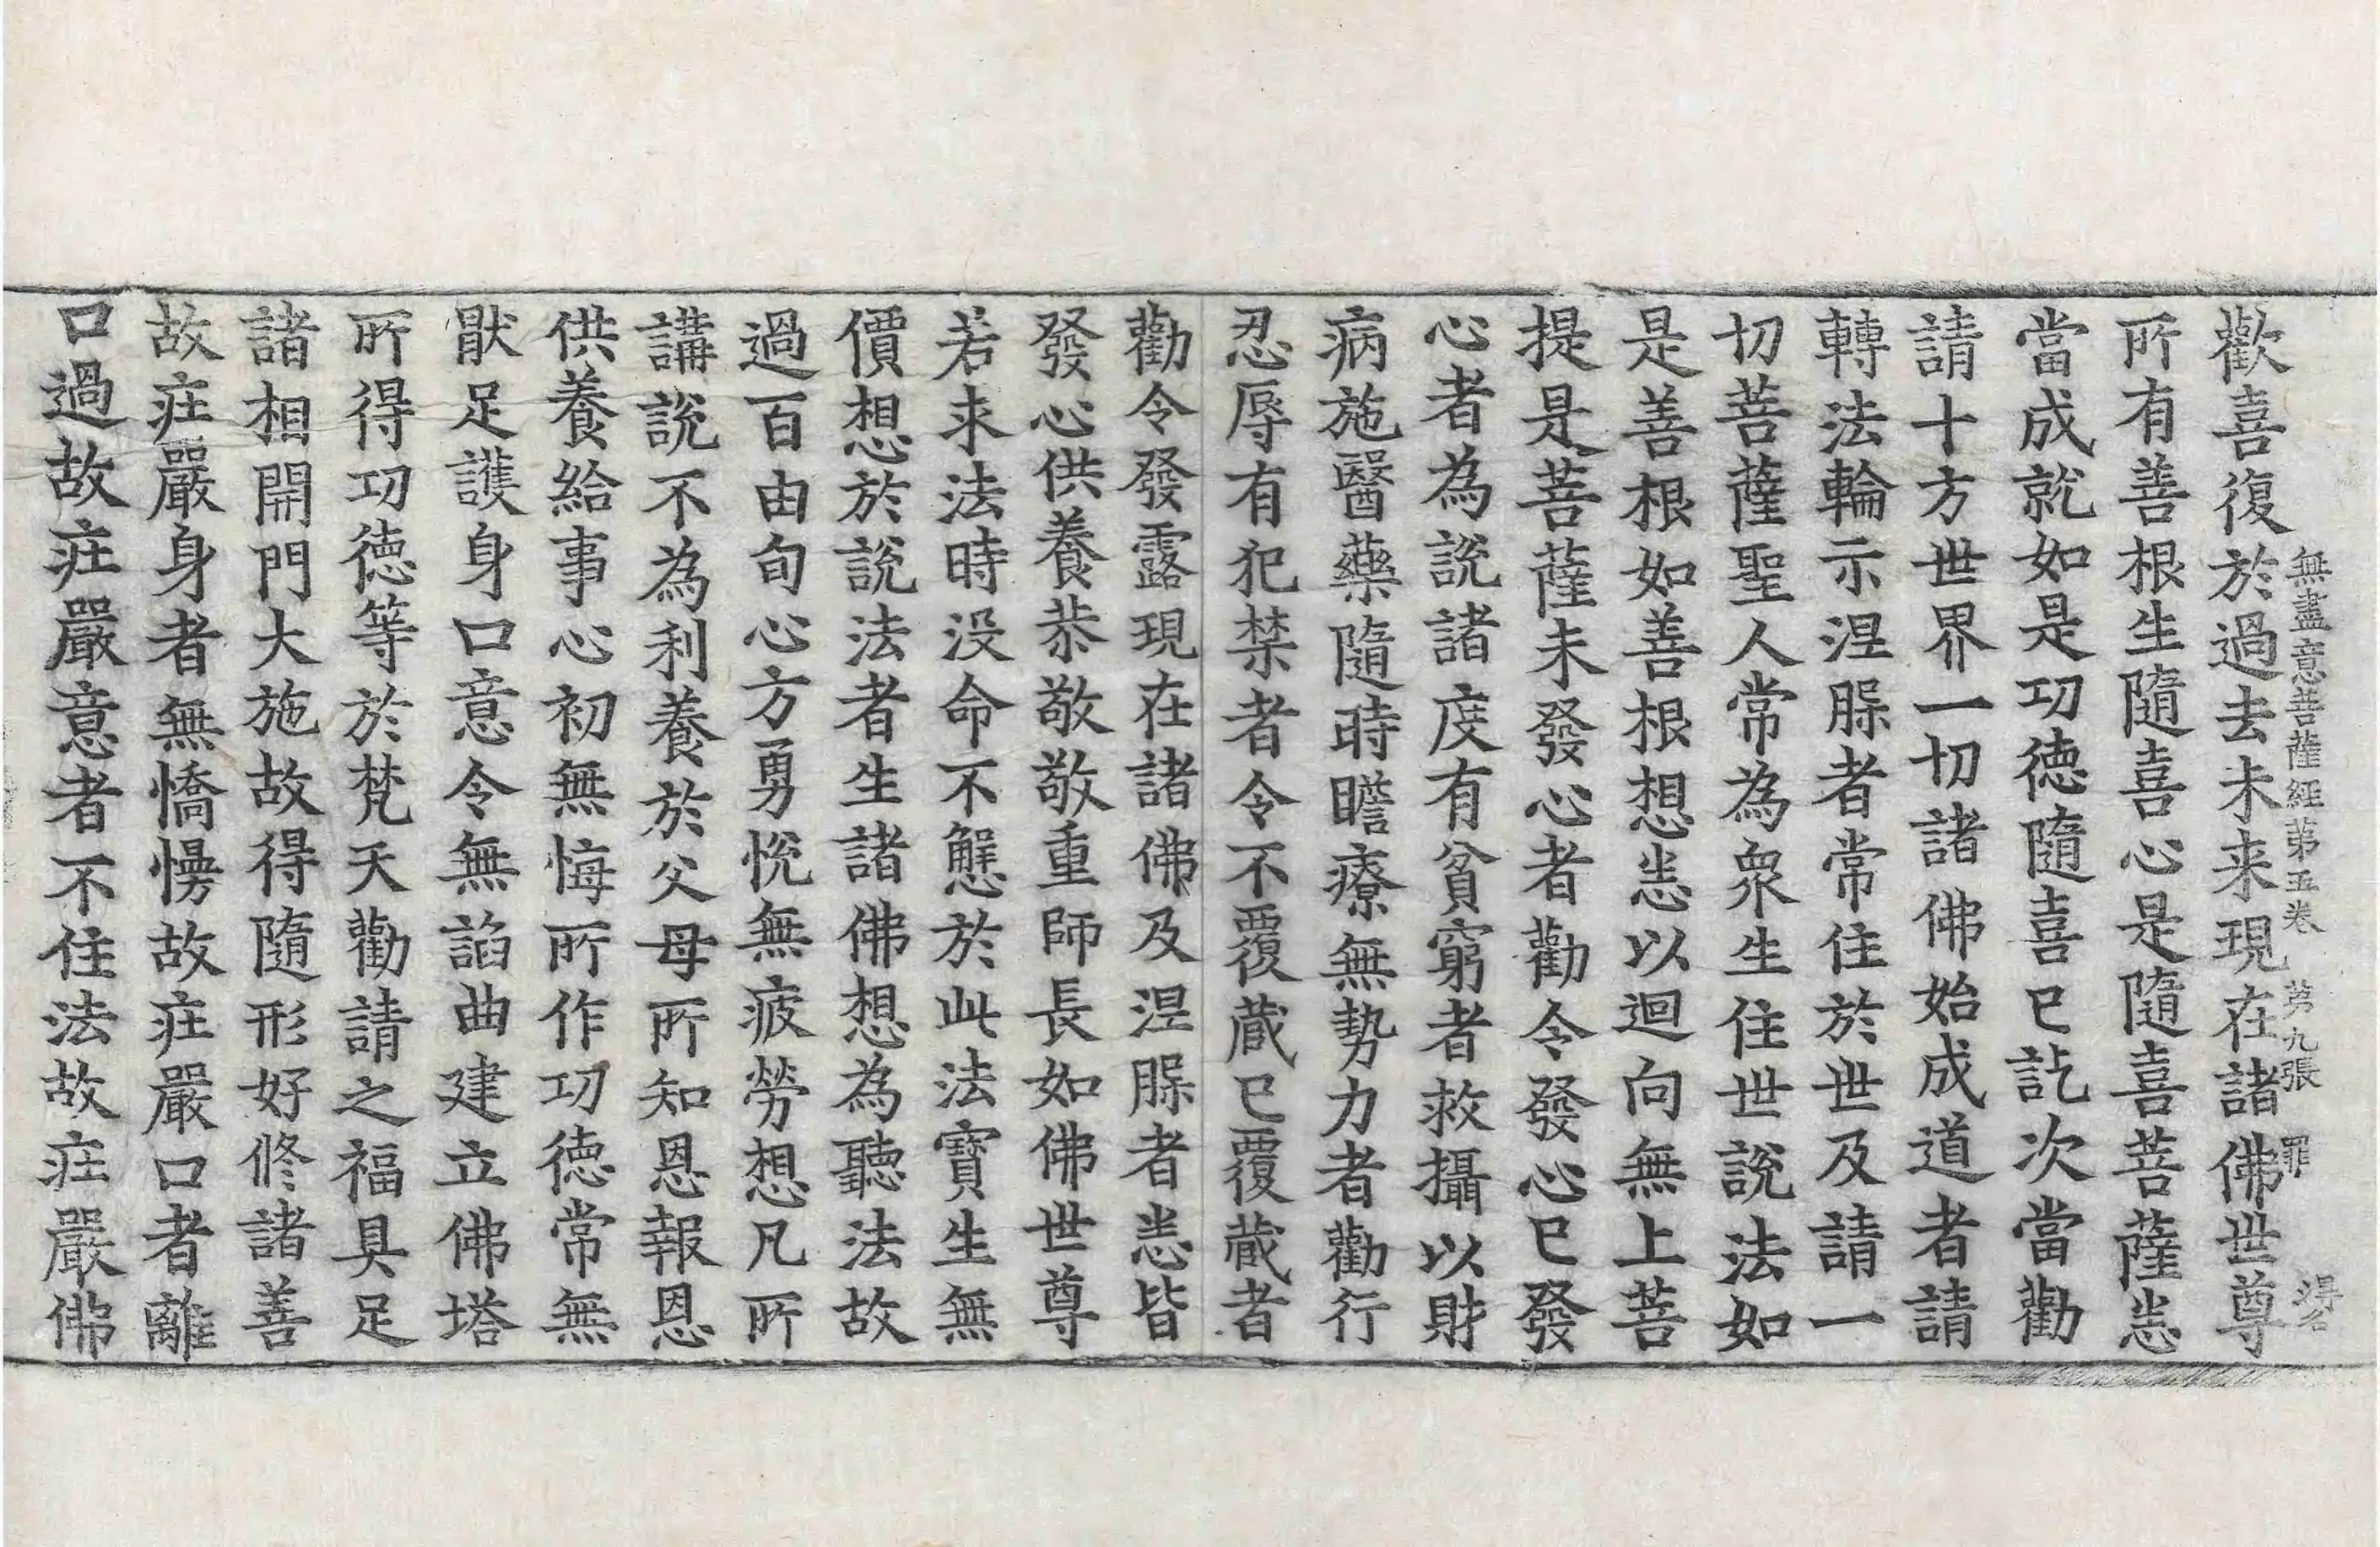 歡喜復於過去未来現在諸佛世尊
無盡意菩薩經第五卷 第九張 罪 得名
所有善根生隨喜心是隨喜菩薩悉
當成就如是功徳隨喜已訖次當勸
請十方世界一切諸佛始成道者請
轉法輪示涅槃者常住於世及請一
切菩薩聖人常為衆生住世說法如
是善根如善根想悉以迴向無上菩
提是菩薩未發心者勸令發心已發
心者為說諸度有貧窮者救攝以財
病施醫藥隨時瞻療無勢力者勸行
忍辱有犯禁者令不覆蔵已覆蔵者
勸令發露現在諸佛及涅槃者悉皆
發心供養恭敬敬重師長如佛世尊
若求法時没命不懈於此法寶生無
價想於說法者生諸佛想為聽法故
過百由旬心方勇悅無疲勞想凡所
講說不為利養於父母所知恩報恩
供養給事心初無悔所作功徳常無
猒足護身口意令無諂曲建立佛塔
所得功徳等於梵天勸請之福具足
諸相開門大施故得隨形好修諸善
故庄嚴身者無憍慢故庄嚴口者離
口過故庄嚴意者不住法故庄嚴佛